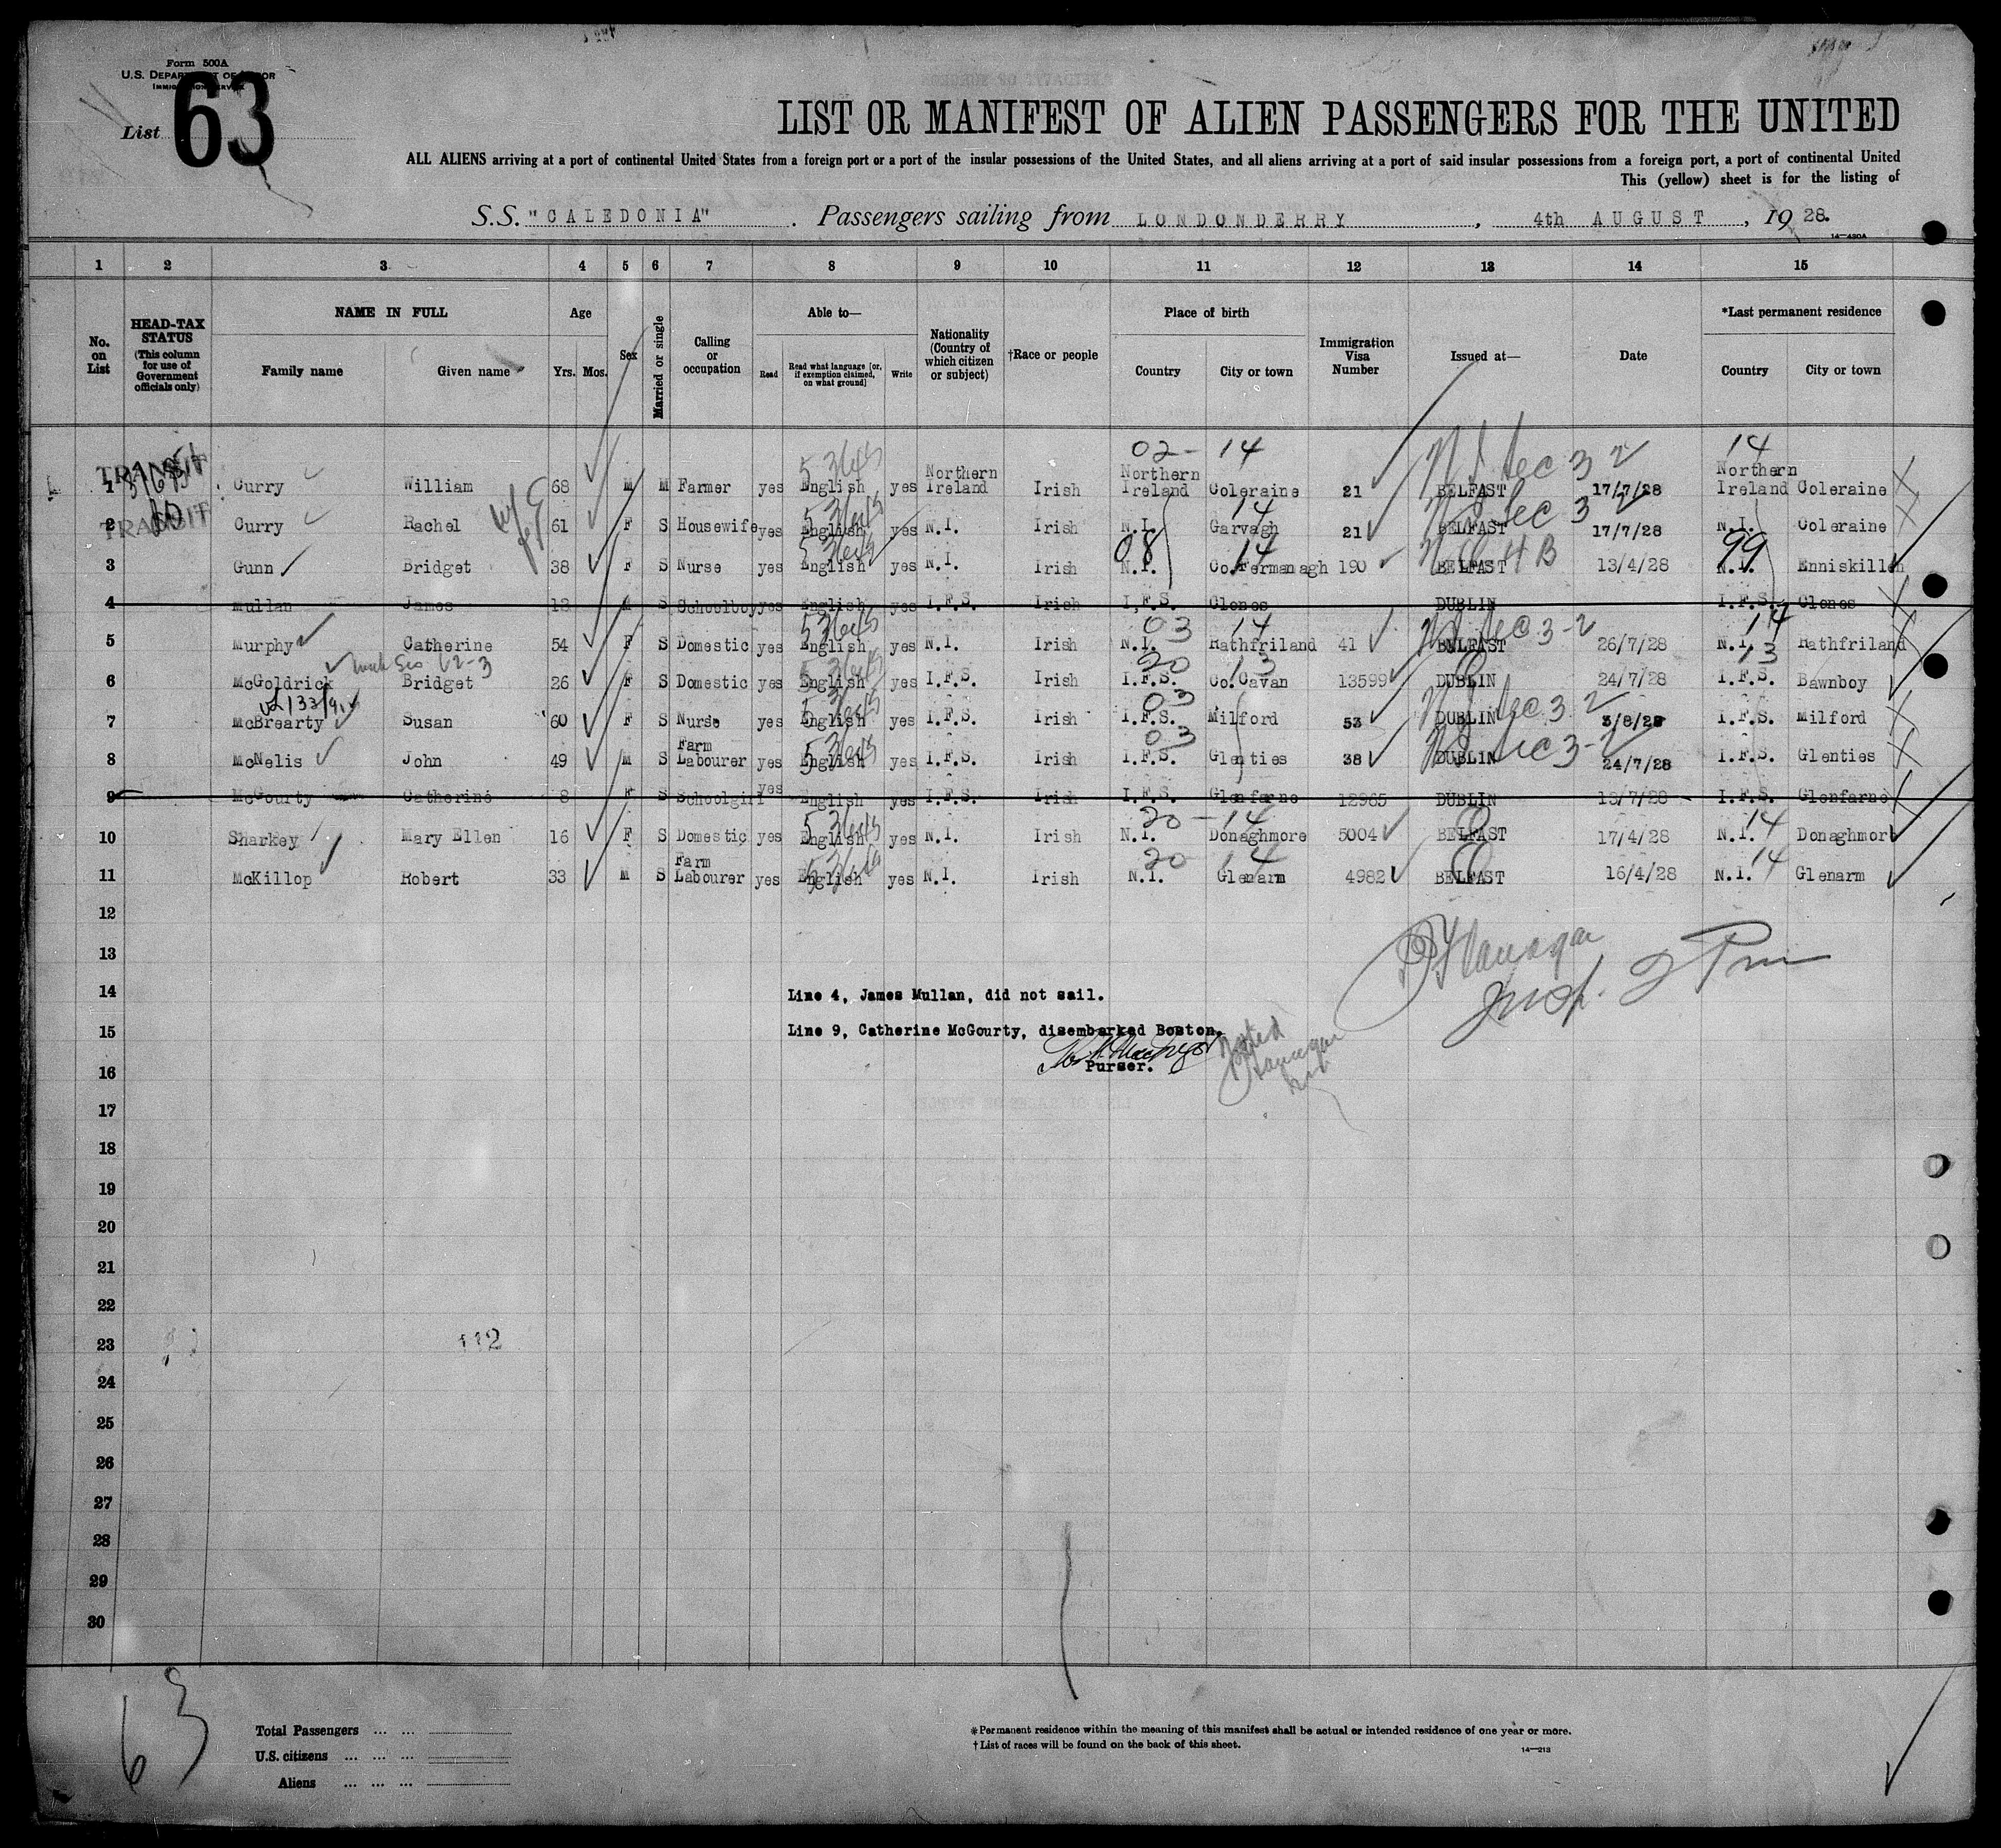 Form 500A
U.S. DEPARTMENT OF LABOR
IMMIGRATION SERVICE
List 63
LIST OR MANIFEST OF ALIEN PASSENGERS FOR THE UNITED
ALL ALIENS arriving at a port of continental United States from a foreign port or a port of the insular possessions of the United States, and all aliens arriving at a port of said insular possessions from a foreign port, a port of continental United
This (yellow) sheet is for the listing of
S.S. "CALEDONIA". Passengers sailing from LONDONDERRY, 4th AUGUST, 1928.
14—480A
1 2 3 4 5 6 7 8 9 10 11 12 13 14 15
No. on List
HEAD-TAX STATUS (This column for use of Government officials only)
NAME IN FULL
Family name Given name
Age
Yrs. Mos.
Sex
Married or single
Calling or occupation
Able to—
Read Read what language [or, if exemption claimed, on what ground] Write
Nationality (Country of which citizen or subject)
†Race or people
Place of birth
Country City or town
Immigration Visa Number
Issued at—
Date
*Last permanent residence
Country City or town
02- 14 14
TRANSIT
1 Curry William 68 M M Farmer yes English yes Northern Ireland Irish Northern Ireland Coleraine 21 BELFAST 17/7/28 Northern Ireland Coleraine
TRANSIT
14
2 Curry Rachel 61 F S Housewife yes English yes N.I. Irish N.I. Garvagh 21 BELFAST 17/7/28 N.I. Coleraine
08 14 99
3 Gunn Bridget 38 F S Nurse yes English yes N.I. Irish N.I. Co.Fermanagh 190 BELFAST 13/4/28 N.I. Enniskillen
4 Mullan James 12 M S Schoolboy yes English yes I.F.S. Irish I.F.S. Clones DUBLIN I.F.S. Clones
03 14 14
5 Murphy Catherine 54 F S Domestic yes English yes N.I. Irish N.I. Rathfriland 41 BELFAST 26/7/28 N.I. Rathfriland
20 13 13
6 McGoldrick Bridget 26 F S Domestic yes English yes I.F.S. Irish I.F.S. Co.Cavan 13599 DUBLIN 24/7/28 I.F.S. Bawnboy
03
7 McBrearty Susan 60 F S Nurse yes English yes I.F.S. Irish I.F.S. Milford 53 DUBLIN 3/8/28 I.F.S. Milford
03
8 McNelis John 49 M S Farm Labourer yes English yes I.F.S. Irish I.F.S. Glenties 38 DUBLIN 24/7/28 I.F.S. Glenties
9 McGourty Catherine 8 F S Schoolgirl yes English yes I.F.S. Irish I.F.S. Glenfarne 12965 DUBLIN 13/7/28 I.F.S. Glenfarne
20 - 14 14
10 Sharkey Mary Ellen 16 F S Domestic yes English yes N.I. Irish N.I. Donaghmore 5004 BELFAST 17/4/28 N.I. Donaghmore
20 14 14
11 McKillop Robert 33 M S Farm Labourer yes English yes N.I. Irish N.I. Glenarm 4982 BELFAST 16/4/28 N.I. Glenarm
12
13
14 Line 4, James Mullan, did not sail.
15 Line 9, Catherine McGourty, disembarked Boston.
Purser.
16
17
18
19
20
21
22
23
112
24
25
26
27
28
29
30
63
Total Passengers ... ...
U.S. citizens ... ... ...
Aliens ... ... ...
*Permanent residence within the meaning of this manifest shall be actual or intended residence of one year or more.
†List of races will be found on the back of this sheet.
14—213